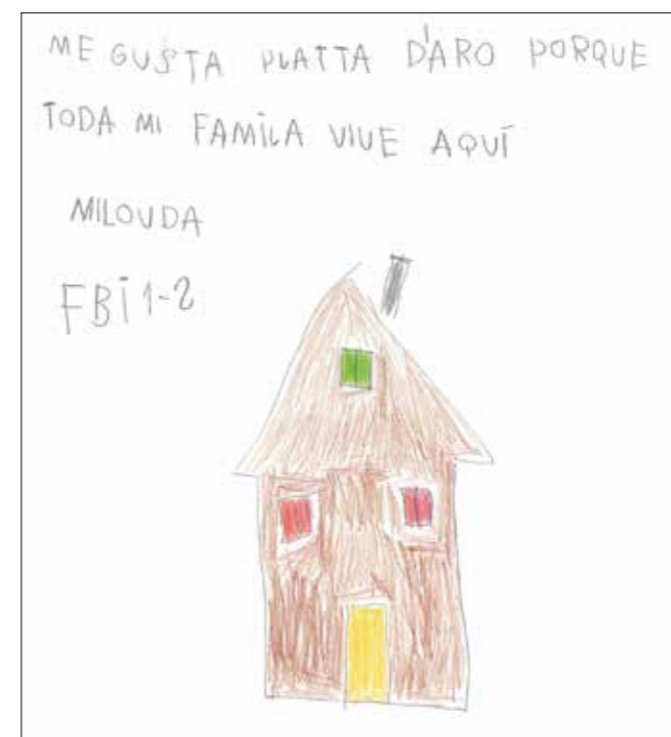 ME GUSTA PLATTA D'ARO PORQUE
TODA MI FAMILA VIVE AQUÍ
MILOUDA
FBI 1-2